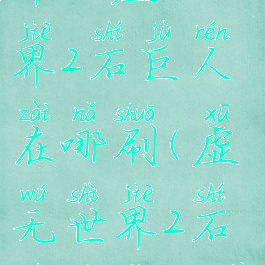 jiè shí jù rén
界2石巨人
zài nǎ shuā xū
在哪刷(虚
wú shì jiè shí
无世界2石